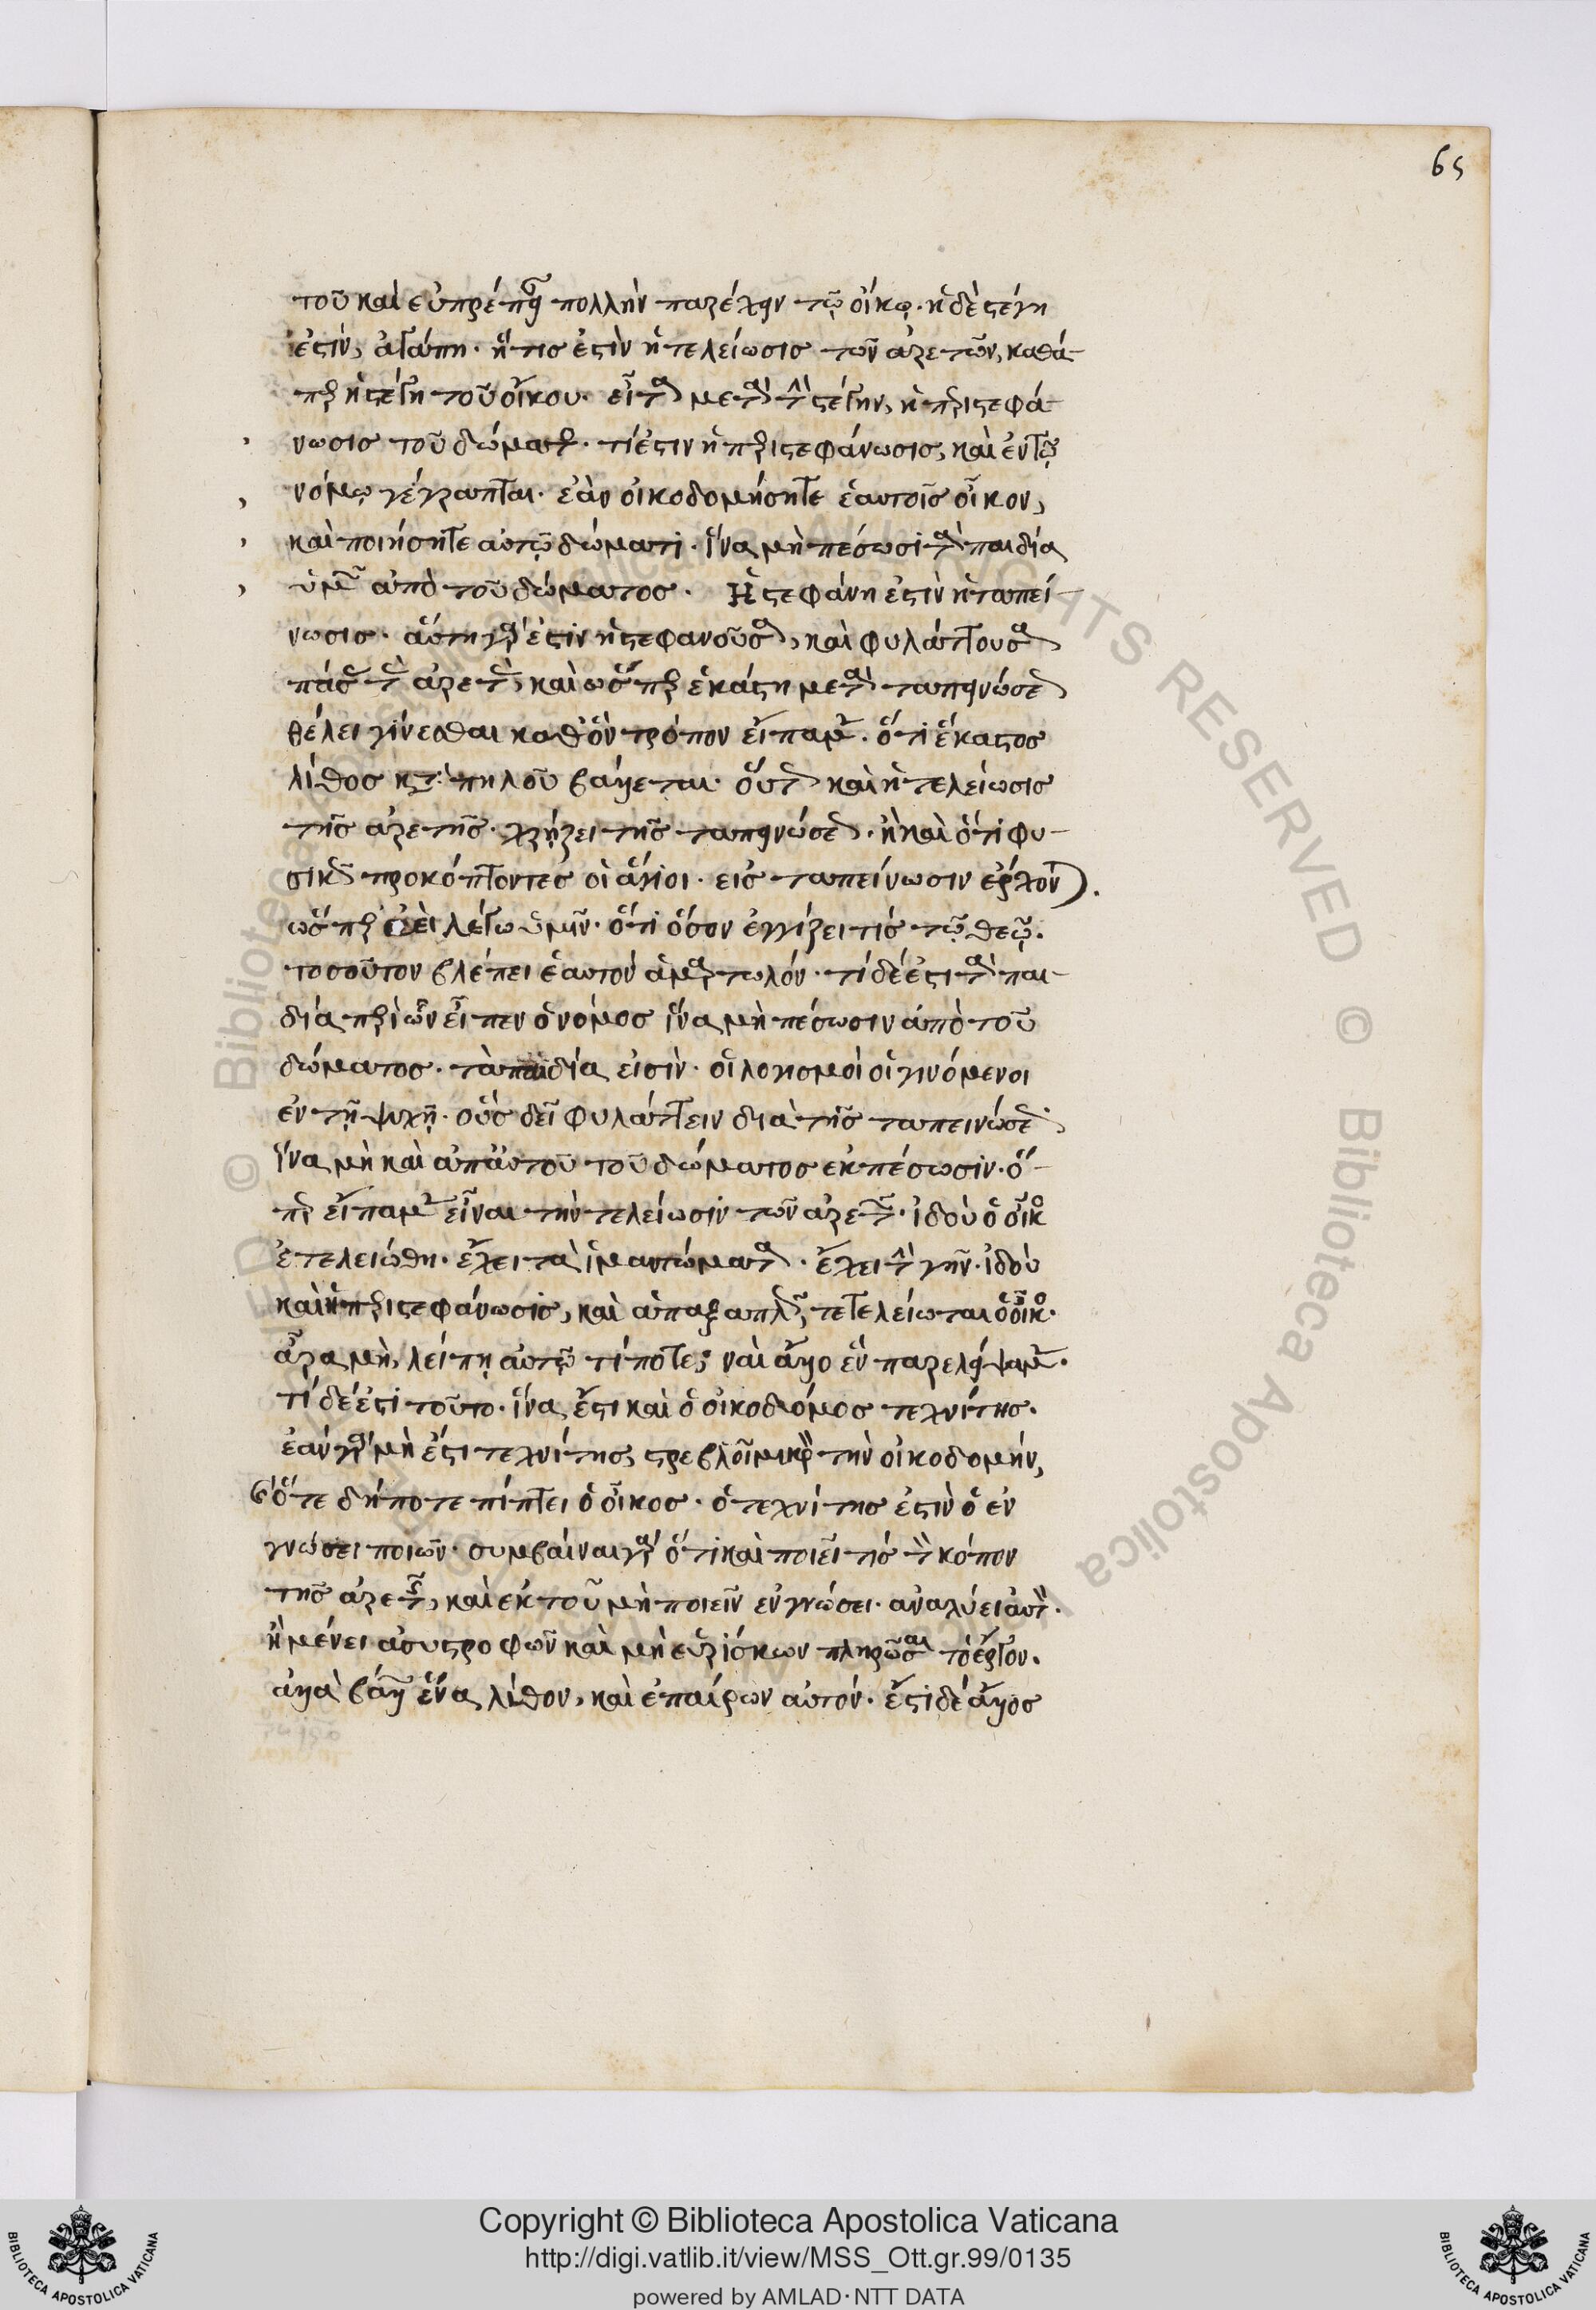 65
τοῦ καὶ εὐπρέπειαν πολλὴν παρέχειν τῷ οἴκῳ. ἡ δὲ στέγη
ἐστὶν, ἀγάπη. ἥτις ἐστὶν ἡ τελείωσις τῶν ἀρετῶν, καθά-
περ ἡ στέγη τοῦ οἴκου. εἶτα μετὰ τὴν στέγην, ἡ περιστεφά-
νωσις τοῦ δώματος. τί ἐστιν ἡ περιστεφάνωσις, καὶ ἐν τῷ
νόμῳ γέγραπται. ἐὰν οἰκοδομήσητε ἑαυτοῖς οἶκον,
καὶ ποιήσητε αὐτῷ δώματι. ἵνα μὴ πέσωσι τὰ παιδία
ὑμῶν ἀπὸ τοῦ δώματος. Ἡ στεφάνη ἐστὶν ἡ ταπεί-
νωσις. αὕτη γάρ ἐστιν ἡ στεφανοῦσα, καὶ φυλάττουσα
πάσας τὰς ἀρετὰς, καὶ ὥσπερ ἑκάστη μετὰ ταπεινώσεως
θέλει γίνεσθαι καθ' ὃν τρόπον εἴπαμεν. ὅτι ἕκαστος
λίθος μετὰ πηλοῦ βάλλεται. οὕτως καὶ ἡ τελείωσις
τῆς ἀρετῆς. χρῄζει τῆς ταπεινώσεως. ἢ καὶ ὅτι φυ-
σικῶς προκόπτοντες οἱ ἅγιοι. εἰς ταπείνωσιν ἔρχονται.
ὥσπερ ἀεὶ λέγω ὑμῖν. ὅτι ὅσον ἐγγίζει τίς τῷ θεῷ.
τοσοῦτον βλέπει ἑαυτὸν ἁμαρτωλόν. τί δέ ἐστι τὰ παι-
δία περὶ ὧν εἶπεν ὁ νόμος ἵνα μὴ πέσωσιν ἀπὸ τοῦ
δώματος. τὰ παιδία εἰσὶν. οἱ λογισμοὶ οἱ γινόμενοι
ἐν τῇ ψυχῇ. οὓς δεῖ φυλάττειν διὰ τῆς ταπεινώσεως
ἵνα μὴ καὶ ἀπ' αὐτοῦ τοῦ δώματος ἐκπέσωσιν. ὅ-
περ εἴπαμεν εἶναι τὴν τελείωσιν τῶν ἀρετῶν. ἰδοὺ ὁ οἶκος
ἐτελειώθη. ἔχει τὰ ἱμαντώματα. ἔχει τὴν γῆν. ἰδοὺ
καὶ ἡ περιστεφάνωσις, καὶ ἁπαξαπλῶς, τετελείωται ὁ οἶκος.
ἆρα μὴ, λείπῃ αὐτῷ τίποτε; ναὶ ἄλλο ἓν παρελείψαμεν.
τί δέ ἐστι τοῦτο. ἵνα, ἔστι καὶ ὁ οἰκοδόμος τεχνίτης.
ἐὰν γὰρ μὴ ἔστι τεχνίτης, στρεβλοῖ μικρὸν τὴν οἰκοδομήν,
ὅτε δήποτε πίπτει ὁ οἶκος. ὁ τεχνίτης ἐστὶν ὁ ἐν
γνώσει ποιῶν. συμβαίναι γὰρ ὅτι καὶ ποιεῖ τίς τὸν κόπον
τῆς ἀρετῆς, καὶ ἐκ τοῦ μὴ ποιεῖν ἐν γνώσει. ἀναλύει αὐτὸν.
ἢ μένει ἀσυστροφῶν καὶ μὴ εὑρίσκων πληρῶσαι τὸ ἔργον.
ἀλλὰ βάλλει ἕνα λίθον, καὶ ἐπαίρων αὐτόν. ἔστι δὲ ἄλλος
Copyright © Biblioteca Apostolica Vaticana
http://digi.vatlib.it/view/MSS_Ott.gr.99/0135
powered by AMLAD·NTT DATA